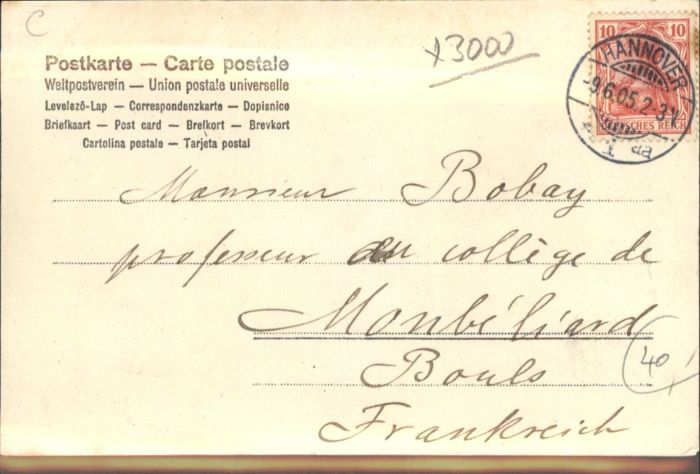 C
x3000
Postkarte — Carte postale
Weltpostverein — Union postale universelle
Levelező-Lap — Correspondenzkarte — Dopisnice
Briefkaart — Post card — Brefkort — Brevkort
Cartolina postale — Tarjeta postal
10 10
HANNOVER
9.6.05.2-3N
SCHES REICH
Monsieur Bobay
professeur au collège de
Monbéliard
Bouls
Frankreich
40